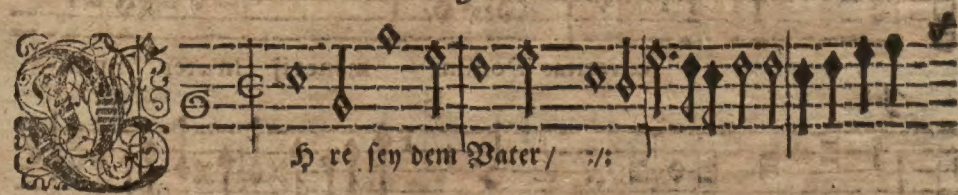 H re sey dem Vater / :/: